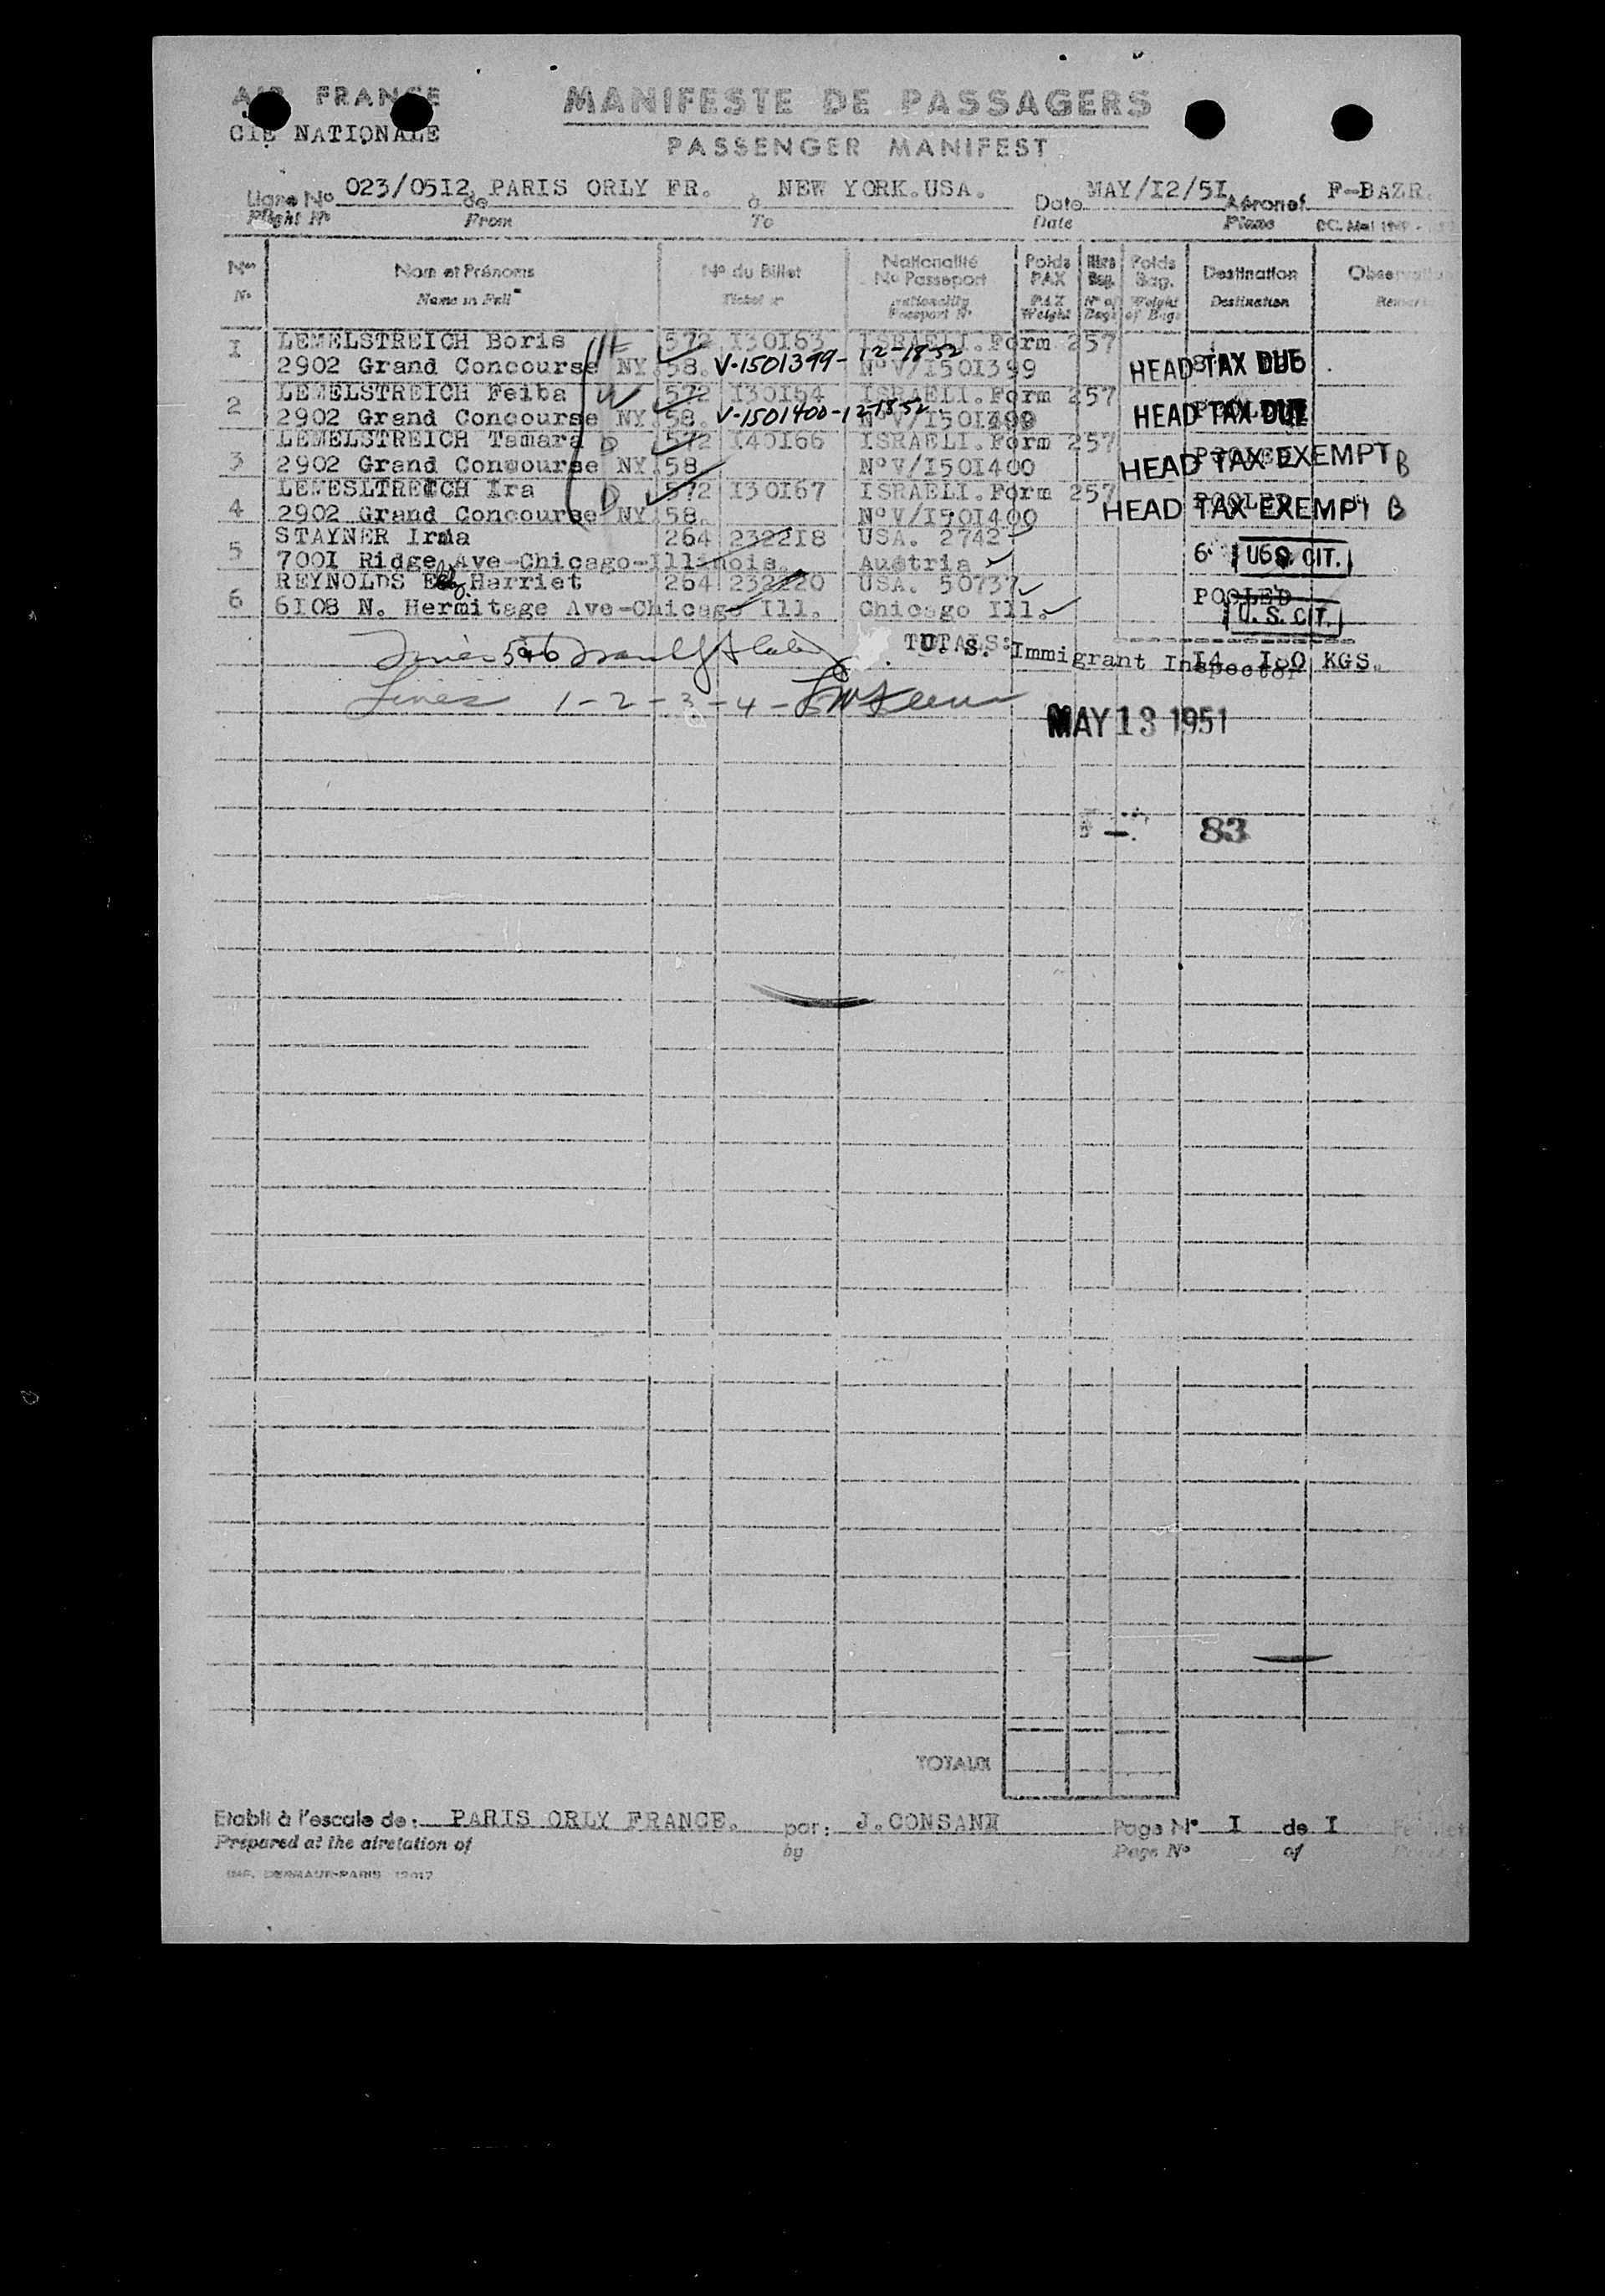 AIR FRANCE
CIE NATIONALE
MANIFESTE DE PASSAGERS
PASSENGER MANIFEST
Ligne No 023/0512 de PARIS ORLY FR. à NEW YORK.USA. Date MAY/I2/5I Aéronef F-BAZR.
Flight No From To Date Plane
Nos Nom et Prénoms No du Billet Nationalité No Passeport Poids PAX Nbre Bag. Poids Bag. Destination
No Name in Full Ticket Nationality Passport No PAX Weight No of Bags Weight of Bags Destination
I LEMELSTREICH Boris H 572 I30I63 ISRAELI.Form 257
2902 Grand Concourse NY.58. V-1501399-12-18-52 N°V/I50I399 HEAD TAX DUE
2 LEMELSTREICH Feiba W 572 I30I64 ISRAELI.Form 257
2902 Grand Concourse NY.58. V-1501400-12-18-52 HEAD TAX DUE
LEMELSTREICH Tamara D 572 I40I66 ISRAELI.Form 257
3 2902 Grand Concourse NY.58. N°V/I50I400 POOLED HEAD TAX EXEMPT B
LEMESLTREICH Ira D 572 I30I67 ISRAELI.Form 257
4 2902 Grand Concourse NY.58. N°V/I50I400 POOLED HEAD TAX EXEMPT B
STAYNER Irma 264 2322I8 USA. 2742
5 700I Ridge Ave-Chicago-Illinois. Austria 6 U.S. CIT.
REYNOLDS Harriet 264 232220 USA. 50737
6 6I08 N. Hermitage Ave-Chicago Ill. Chicago Ill. POOLED U. S. CIT.
Lines 5+6
TOTALS: U. S. Immigrant Inspector I4 I80 KGS.
Lines 1-2-3-4-
MAY 13 1951
83
TOTAUX
Etabli à l'escale de: PARIS ORLY FRANCE. par: J.CONSANH Page No I de I
Prepared at the airstation of by Page No of